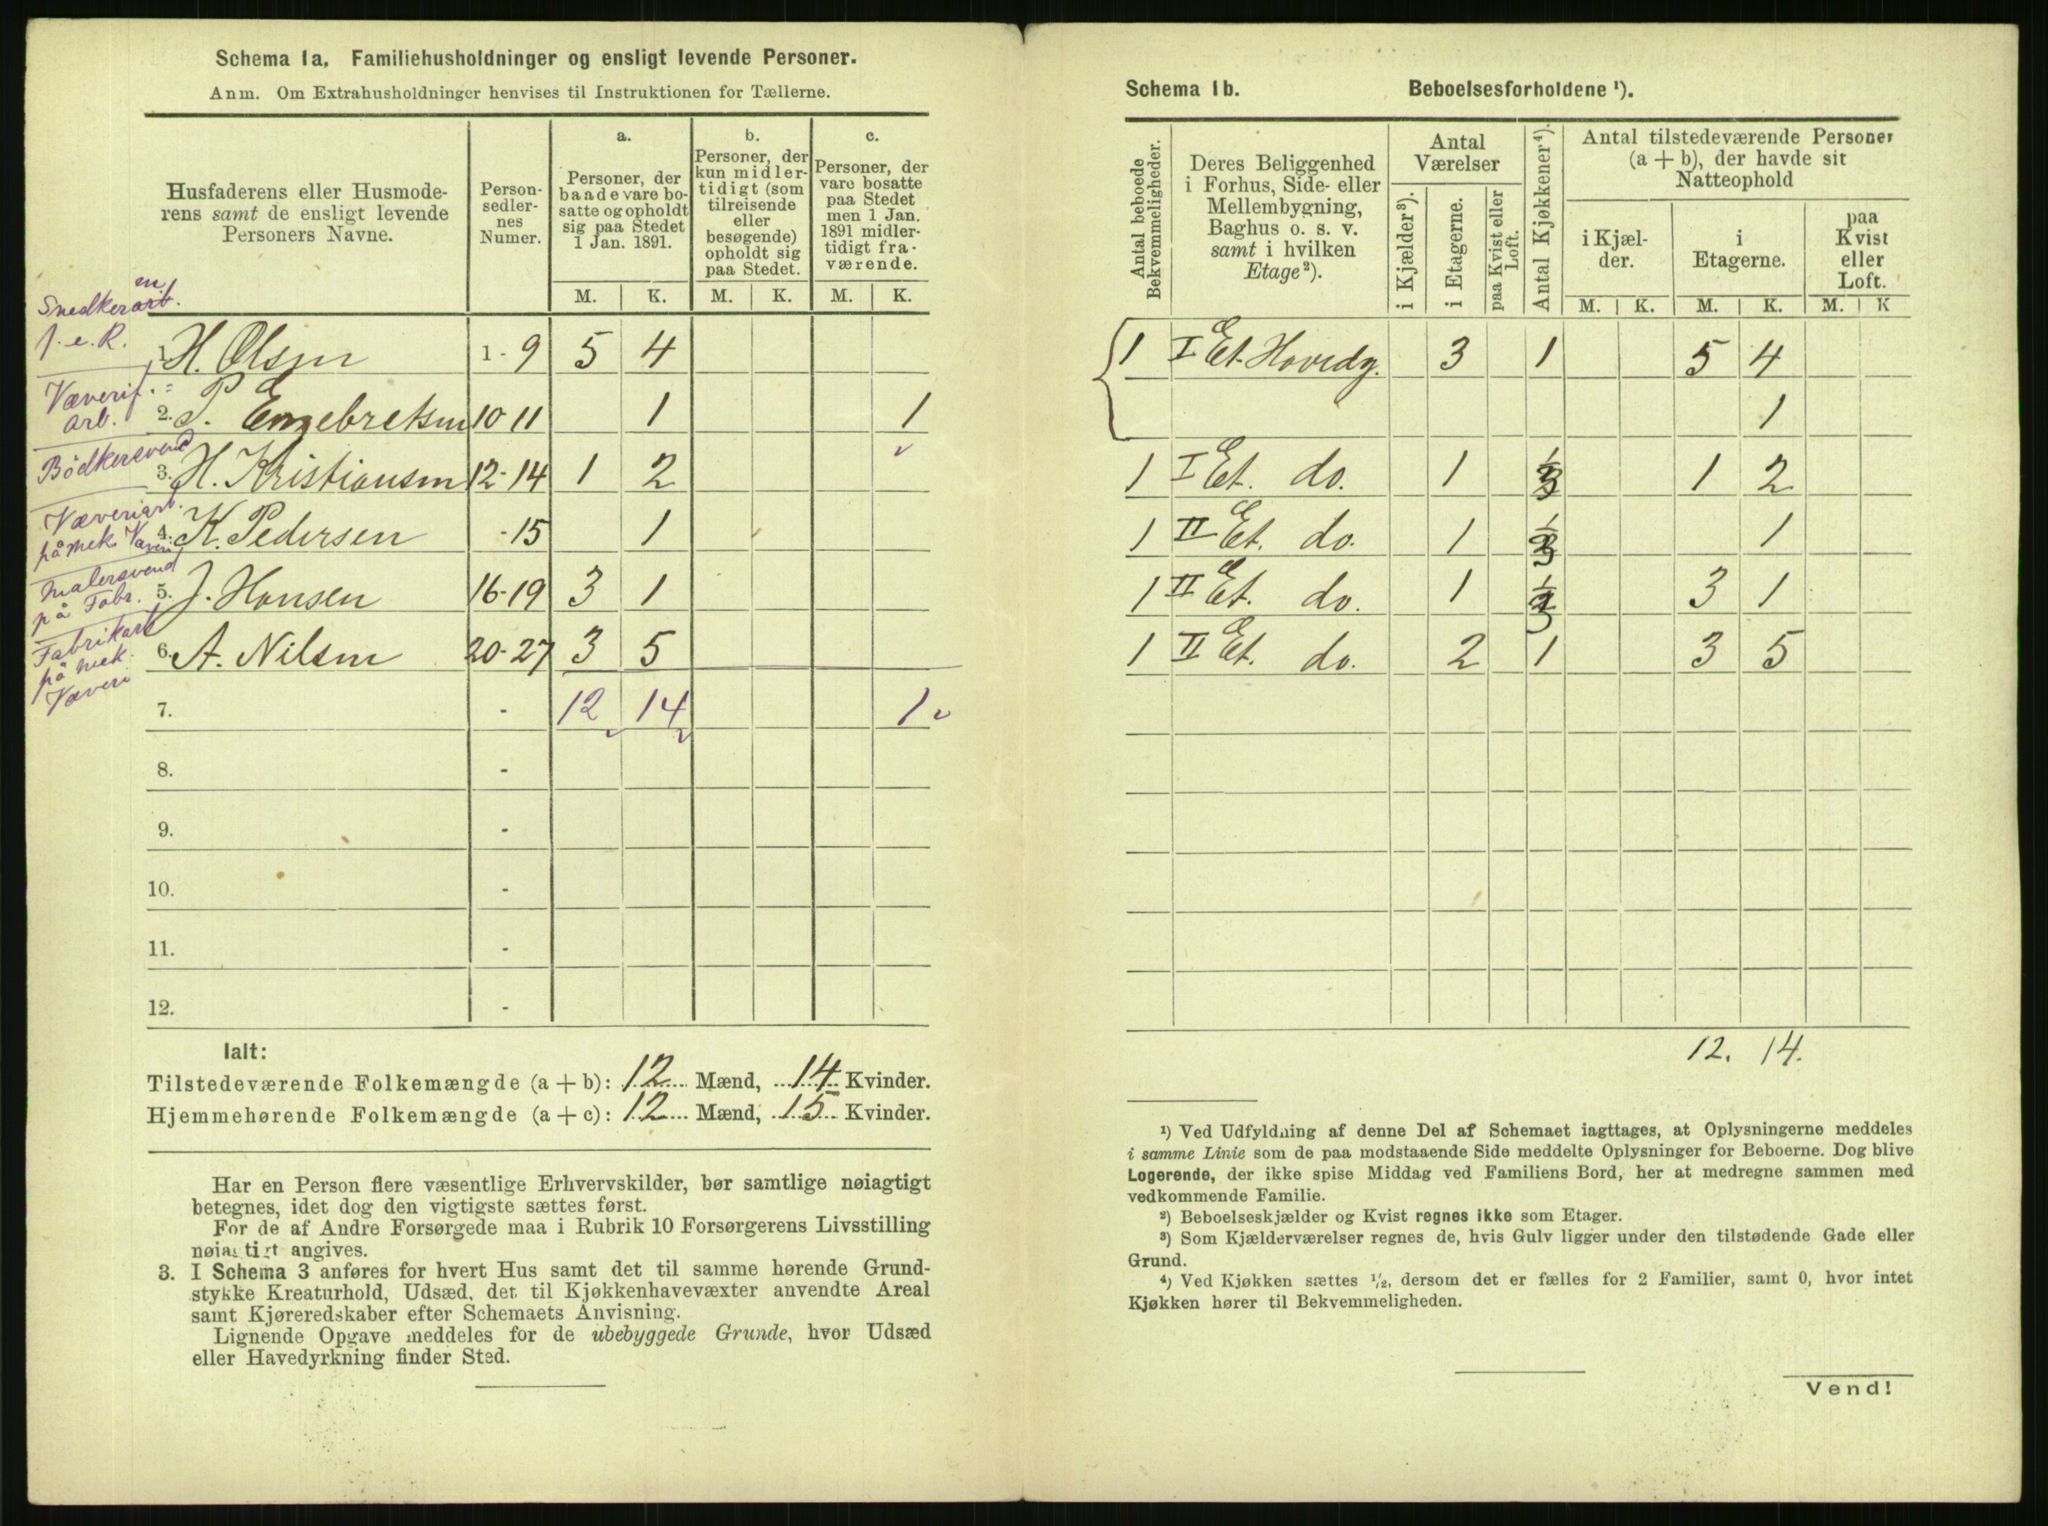 Schema 1a. Familiehusholdninger og ensligt levende Personer.
Anm. Om Extrahusholdninger henvises til Instruktionen for Tællerne.
Husfaderens eller Husmode-
rens samt de ensligt levende
Personers Navne.
Person-
sedler-
nes
Numer.
a.
Personer, der
baade vare bo-
satte og opholdt
sig paa Stedet
1 Jan. 1891.
b.
Personer, der
kun midler-
tidigt (som
tilreisende
eller
besøgende)
opholdt sig
paa Stedet.
c.
Personer, der
vare bosatte
paa Stedet
men 1 Jan.
1891 midler-
tidigt fra-
værende.
M. K. M. K. M. K.
Snedkerarb.
en
f. e. R.
1. H. Olsen 1 - 9 5 4
Væverif. =
arb.
2. P. Engebretsen 10 11 1 1
Bödkersvend
3. H. Kristiansen 12 - 14 1 2
Væveriarb.
på mek. Væveri
4. K. Pedersen - 15 1
Malersvend
på Fabr.
5. J. Hansen 16 - 19 3 1
Fabrikarb
på mek.
Væveri
6. A. Nilsen 20 - 27 3 5
7. - 12 14 1
8. -
9. -
10. -
11. -
12. -
Ialt:
Tilstedeværende Folkemængde (a + b): 12 Mænd, 14 Kvinder.
Hjemmehørende Folkemængde (a + c): 12 Mænd, 15 Kvinder.
Har en Person flere væsentlige Erhvervskilder, bør samtlige nøiagtigt
betegnes, idet dog den vigtigste sættes først.
For de af Andre Forsørgede maa i Rubrik 10 Forsørgerens Livsstilling
nøiagtigt angives.
3. I Schema 3 anføres for hvert Hus samt det til samme hørende Grund-
stykke Kreaturhold, Udsæd, det til Kjøkkenhavevæxter anvendte Areal
samt Kjøreredskaber efter Schemaets Anvisning.
Lignende Opgave meddeles for de ubebyggede Grunde, hvor Udsæd
eller Havedyrkning finder Sted.
Schema 1b. Beboelsesforholdene ¹).
Antal beboede
Bekvemmeligheder.
Deres Beliggenhed
i Forhus, Side- eller
Mellembygning,
Baghus o. s. v.
samt i hvilken
Etage ²).
Antal
Værelser
i Kjælder ³).
i Etagerne.
paa Kvist eller
Loft.
Antal Kjøkkener ⁴).
Antal tilstedeværende Personer
(a + b), der havde sit
Natteophold
i Kjæl-
der.
i
Etagerne.
paa
Kvist
eller
Loft.
M. K. M. K. M. K
1 I Et. Hovedg. 3 1 5 4
1
1 I Et. do. 1 1/3 1 2
1 II Et. do. 1 1/3 1
1 II Et. do. 1 1/3 3 1
1 II Et. do. 2 1 3 5
12. 14.
¹) Ved Udfyldning af denne Del af Schemaet iagttages, at Oplysningerne meddeles
i samme Linie som de paa modstaaende Side meddelte Oplysninger for Beboerne. Dog blive
Logerende, der ikke spise Middag ved Familiens Bord, her at medregne sammen med
vedkommende Familie.
²) Beboelseskjælder og Kvist regnes ikke som Etager.
³) Som Kjælderværelser regnes de, hvis Gulv ligger under den tilstødende Gade eller
Grund.
⁴) Ved Kjøkken sættes ½, dersom det er fælles for 2 Familier, samt 0, hvor intet
Kjøkken hører til Bekvemmeligheden.
Vend!